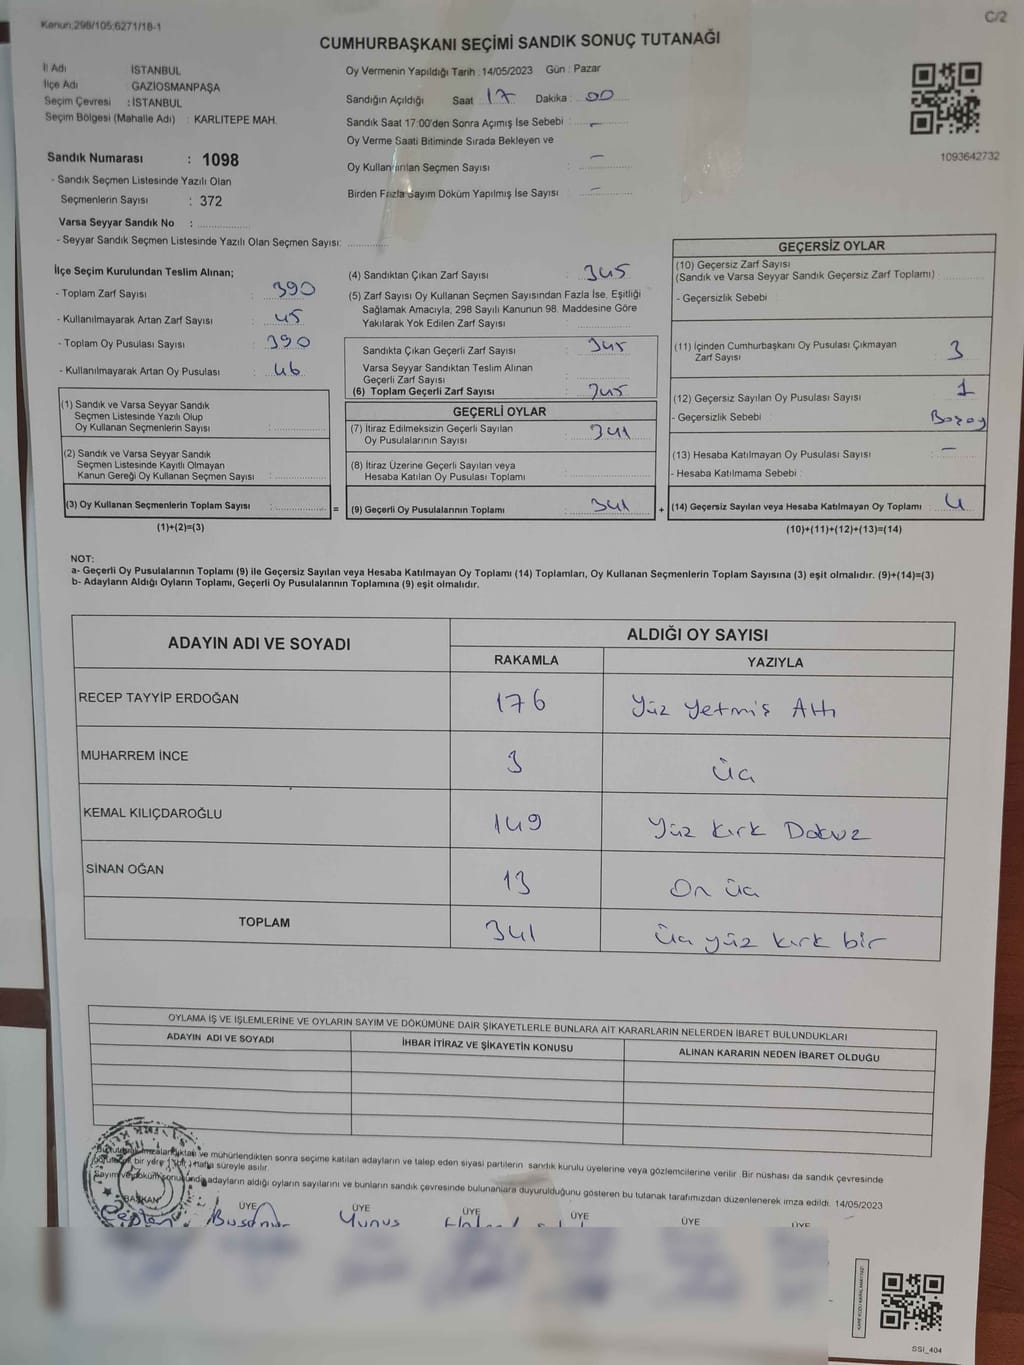 Kanun:298/105;6271/18-1
C/2
CUMHURBAŞKANI SEÇİMİ SANDIK SONUÇ TUTANAĞI
İl Adı : İSTANBUL
İlçe Adı : GAZİOSMANPAŞA
Seçim Çevresi : İSTANBUL
Seçim Bölgesi (Mahalle Adı) : KARLITEPE MAH.
Sandık Numarası : 1098
- Sandık Seçmen Listesinde Yazılı Olan
Seçmenlerin Sayısı : 372
Varsa Seyyar Sandık No :
- Seyyar Sandık Seçmen Listesinde Yazılı Olan Seçmen Sayısı:
Oy Vermenin Yapıldığı Tarih : 14/05/2023 Gün : Pazar
Sandığın Açıldığı Saat : 17 Dakika : 00
Sandık Saat 17:00'den Sonra Açımış İse Sebebi : -
Oy Verme Saati Bitiminde Sırada Bekleyen ve
Oy Kullandırılan Seçmen Sayısı : -
Birden Fazla Sayım Döküm Yapılmış İse Sayısı : -
1093642732
İlçe Seçim Kurulundan Teslim Alınan;
- Toplam Zarf Sayısı : 390
- Kullanılmayarak Artan Zarf Sayısı : 45
- Toplam Oy Pusulası Sayısı : 390
- Kullanılmayarak Artan Oy Pusulası : 46
(1) Sandık ve Varsa Seyyar Sandık
Seçmen Listesinde Yazılı Olup
Oy Kullanan Seçmenlerin Sayısı :
(2) Sandık ve Varsa Seyyar Sandık
Seçmen Listesinde Kayıtlı Olmayan
Kanun Gereği Oy Kullanan Seçmen Sayısı :
(3) Oy Kullanan Seçmenlerin Toplam Sayısı :
(1)+(2)=(3)
=
(4) Sandıktan Çıkan Zarf Sayısı : 345
(5) Zarf Sayısı Oy Kullanan Seçmen Sayısından Fazla İse, Eşitliği
Sağlamak Amacıyla, 298 Sayılı Kanunun 98. Maddesine Göre
Yakılarak Yok Edilen Zarf Sayısı :
Sandıkta Çıkan Geçerli Zarf Sayısı : 345
Varsa Seyyar Sandıktan Teslim Alınan
Geçerli Zarf Sayısı :
(6) Toplam Geçerli Zarf Sayısı : 345
GEÇERLİ OYLAR
(7) İtiraz Edilmeksizin Geçerli Sayılan
Oy Pusulalarının Sayısı : 341
(8) İtiraz Üzerine Geçerli Sayılan veya
Hesaba Katılan Oy Pusulası Toplamı :
(9) Geçerli Oy Pusulalarının Toplamı : 341
+
GEÇERSİZ OYLAR
(10) Geçersiz Zarf Sayısı
(Sandık ve Varsa Seyyar Sandık Geçersiz Zarf Toplamı) :
- Geçersizlik Sebebi :
(11) İçinden Cumhurbaşkanı Oy Pusulası Çıkmayan
Zarf Sayısı : 3
(12) Geçersiz Sayılan Oy Pusulası Sayısı : 1
- Geçersizlik Sebebi :
(13) Hesaba Katılmayan Oy Pusulası Sayısı : -
- Hesaba Katılmama Sebebi :
(14) Geçersiz Sayılan veya Hesaba Katılmayan Oy Toplamı : 4
(10)+(11)+(12)+(13)=(14)
NOT:
a- Geçerli Oy Pusulalarının Toplamı (9) ile Geçersiz Sayılan veya Hesaba Katılmayan Oy Toplamı (14) Toplamları, Oy Kullanan Seçmenlerin Toplam Sayısına (3) eşit olmalıdır. (9)+(14)=(3)
b- Adayların Aldığı Oyların Toplamı, Geçerli Oy Pusulalarının Toplamına (9) eşit olmalıdır.
ADAYIN ADI VE SOYADI ALDIĞI OY SAYISI
RAKAMLA YAZIYLA
RECEP TAYYİP ERDOĞAN 176 Yüz Yetmiş Altı
MUHARREM İNCE 3 üç
KEMAL KILIÇDAROĞLU 149 Yüz kırk Dokuz
SİNAN OĞAN 13 On üç
TOPLAM 341 üç yüz kırk bir
OYLAMA İŞ VE İŞLEMLERİNE VE OYLARIN SAYIM VE DÖKÜMÜNE DAİR ŞİKAYETLERLE BUNLARA AİT KARARLARIN NELERDEN İBARET BULUNDUKLARI
ADAYIN ADI VE SOYADI İHBAR İTİRAZ VE ŞİKAYETİN KONUSU ALINAN KARARIN NEDEN İBARET OLDUĞU
ve mühürlendikten sonra seçime katılan adayların ve talep eden siyasi partilerin sandık kurulu üyelerine veya gözlemcilerine verilir. Bir nüshası da sandık çevresinde
bir yere hafta süreyle asılır.
Sayım ve döküm adayların aldığı oyların sayılarını ve bunların sandık çevresinde bulunanlara duyurulduğunu gösteren bu tutanak tarafımızdan düzenlenerek imza edildi. 14/05/2023
BAŞKAN ÜYE ÜYE ÜYE ÜYE ÜYE ÜYE
Yunus
SSİ_404